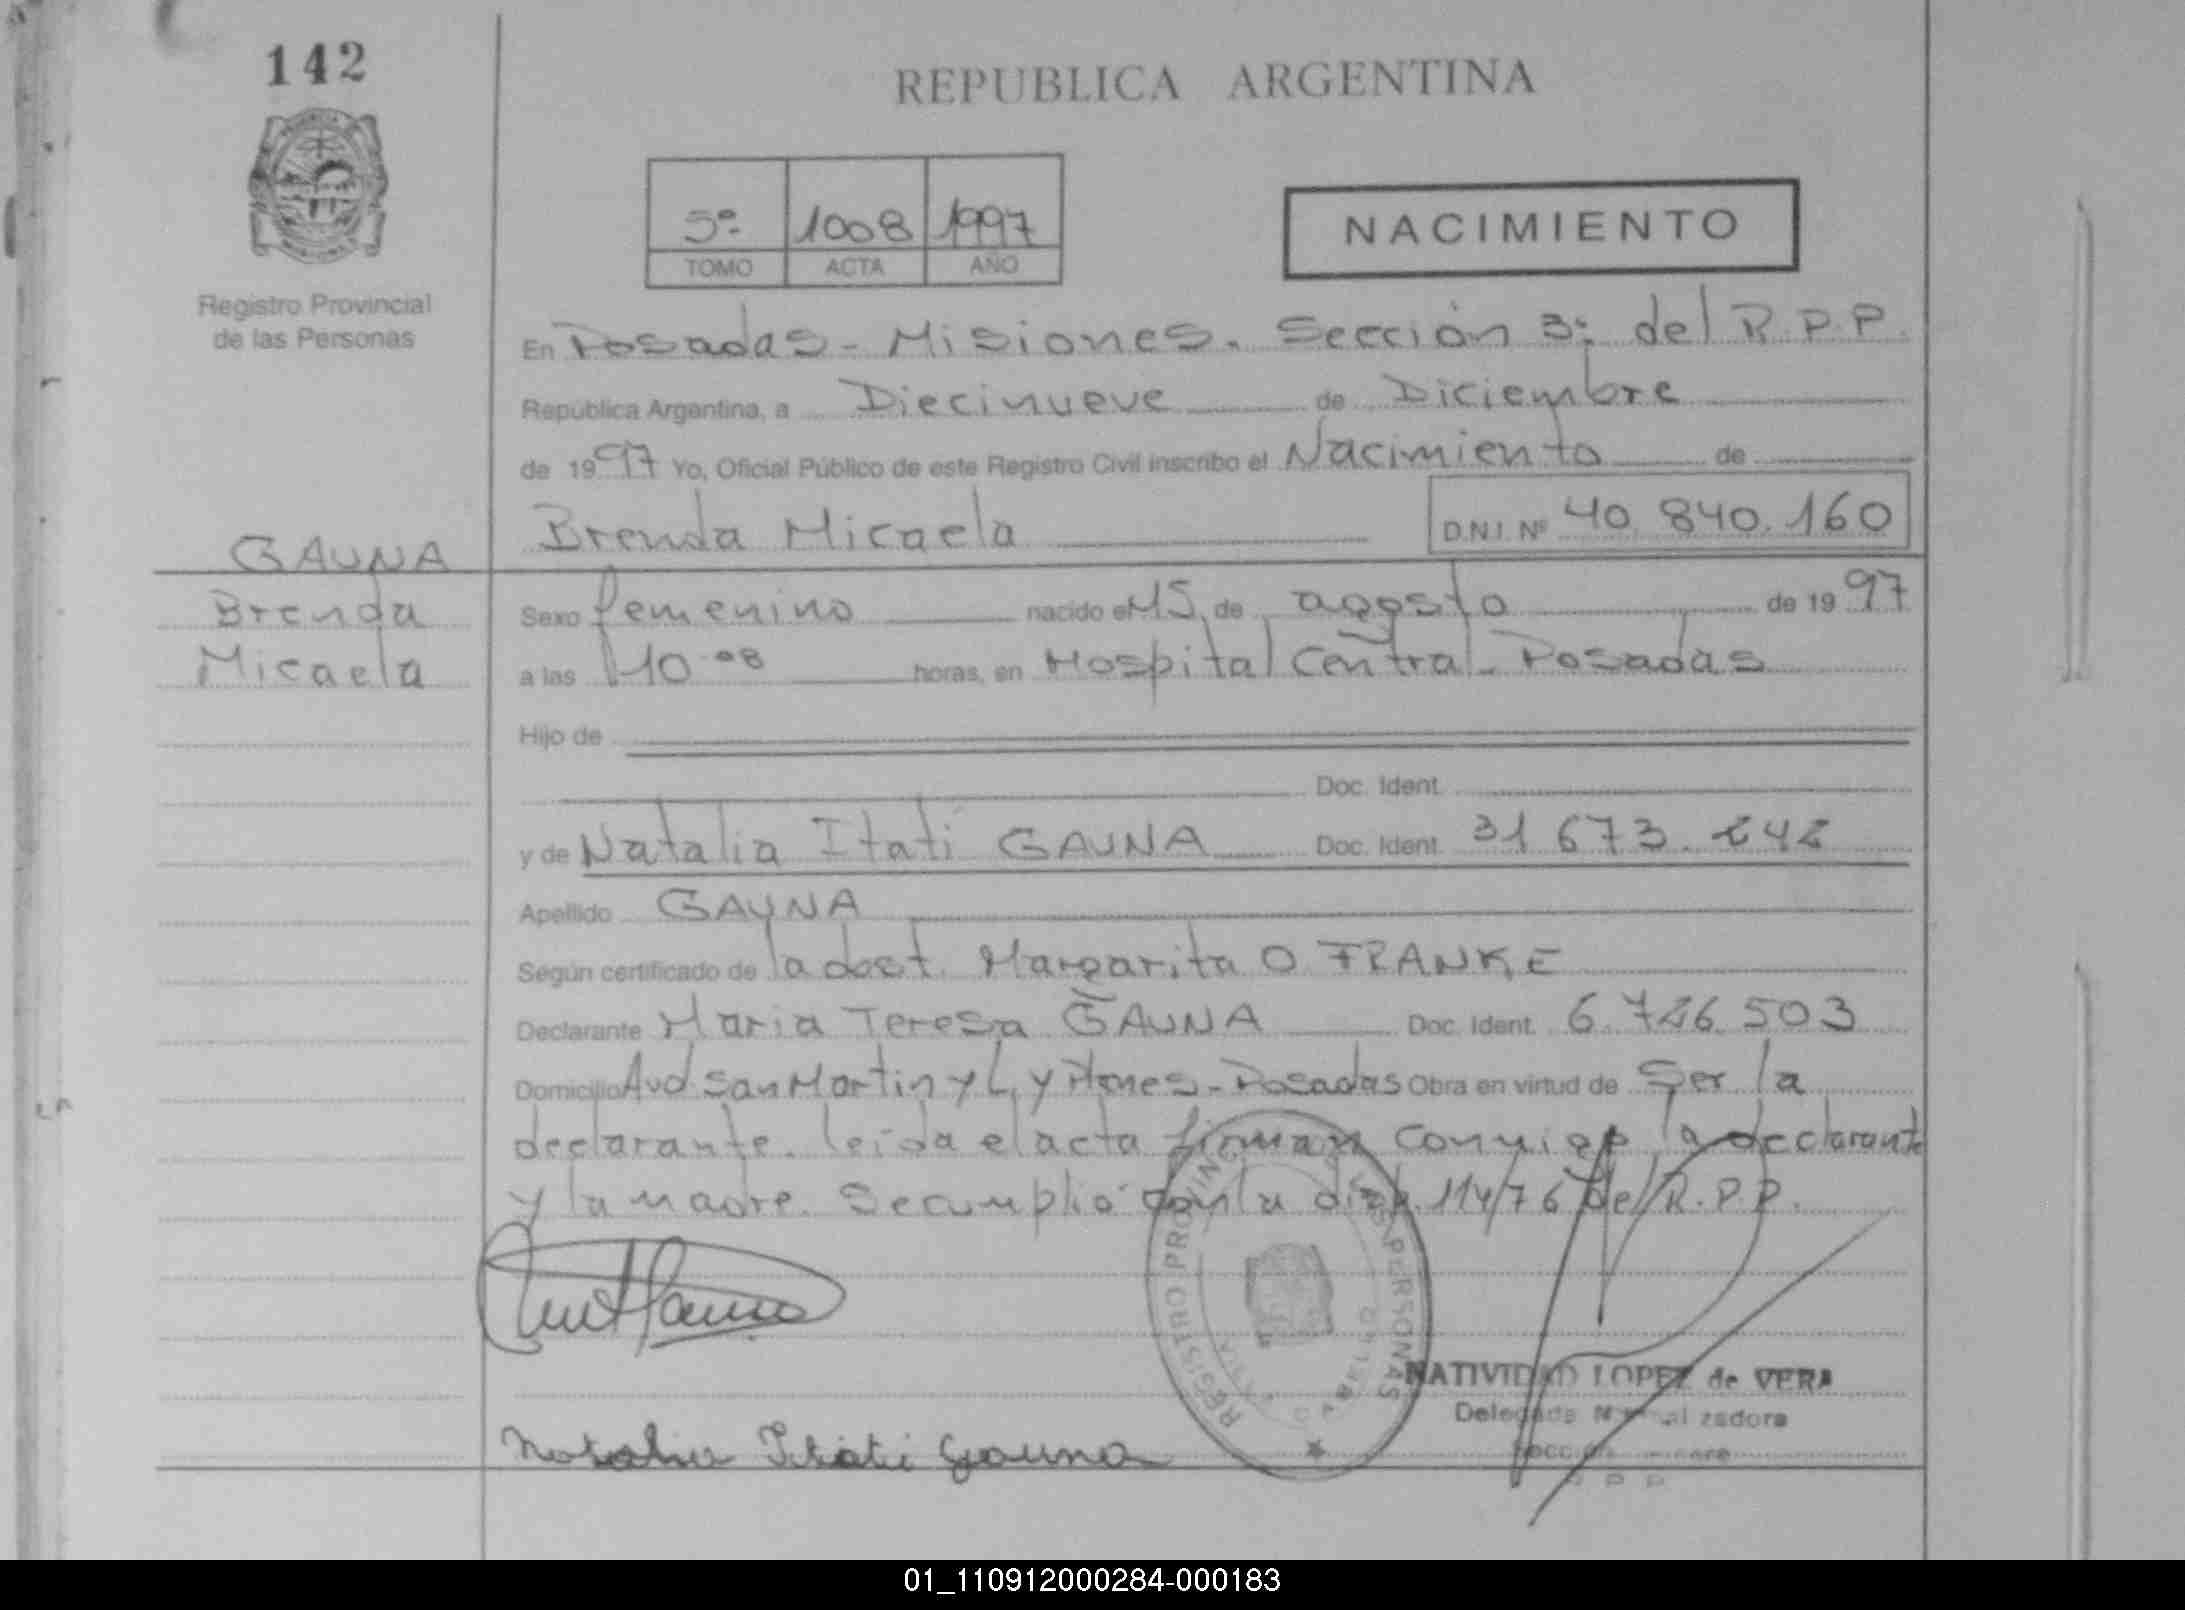 142
REPUBLICA ARGENTINA
5º 1008 1997
TOMO ACTA AÑO
NACIMIENTO
Registro Provincial
de las Personas
En Posadas - Misiones. Sección 3ª del R.P.P.
República Argentina, a Diecinueve de Diciembre
de 1997 Yo, Oficial Público de este Registro Civil inscribo el Nacimiento de
Brenda Micaela D.N.I. Nº 40.840.160
GAUNA
Brenda
Micaela
Sexo femenino nacido el 15 de agosto de 1997
a las 10.08 horas, en Hospital Central - Posadas
Hijo de
Doc. Ident.
y de Natalia Itatí GAUNA Doc. Ident. 31 673. 242
Apellido GAUNA
Según certificado de la doct. Margarita O. FRANKE
Declarante Maria Teresa GAUNA Doc. Ident. 6.726.503
Domicilio Avd San Martin y L. y Planes - Posadas Obra en virtud de Ser la
declarante. leída el acta firman conmigo la declarante
y la madre. Se cumplió con la disp. 114/76 del R.P.P.
REGISTRO PROVINCIAL DE LAS PERSONAS
Natalia Itati Gauna
NATIVIDAD LOPEZ de VERA
Delegada
R P P
01_110912000284-000183